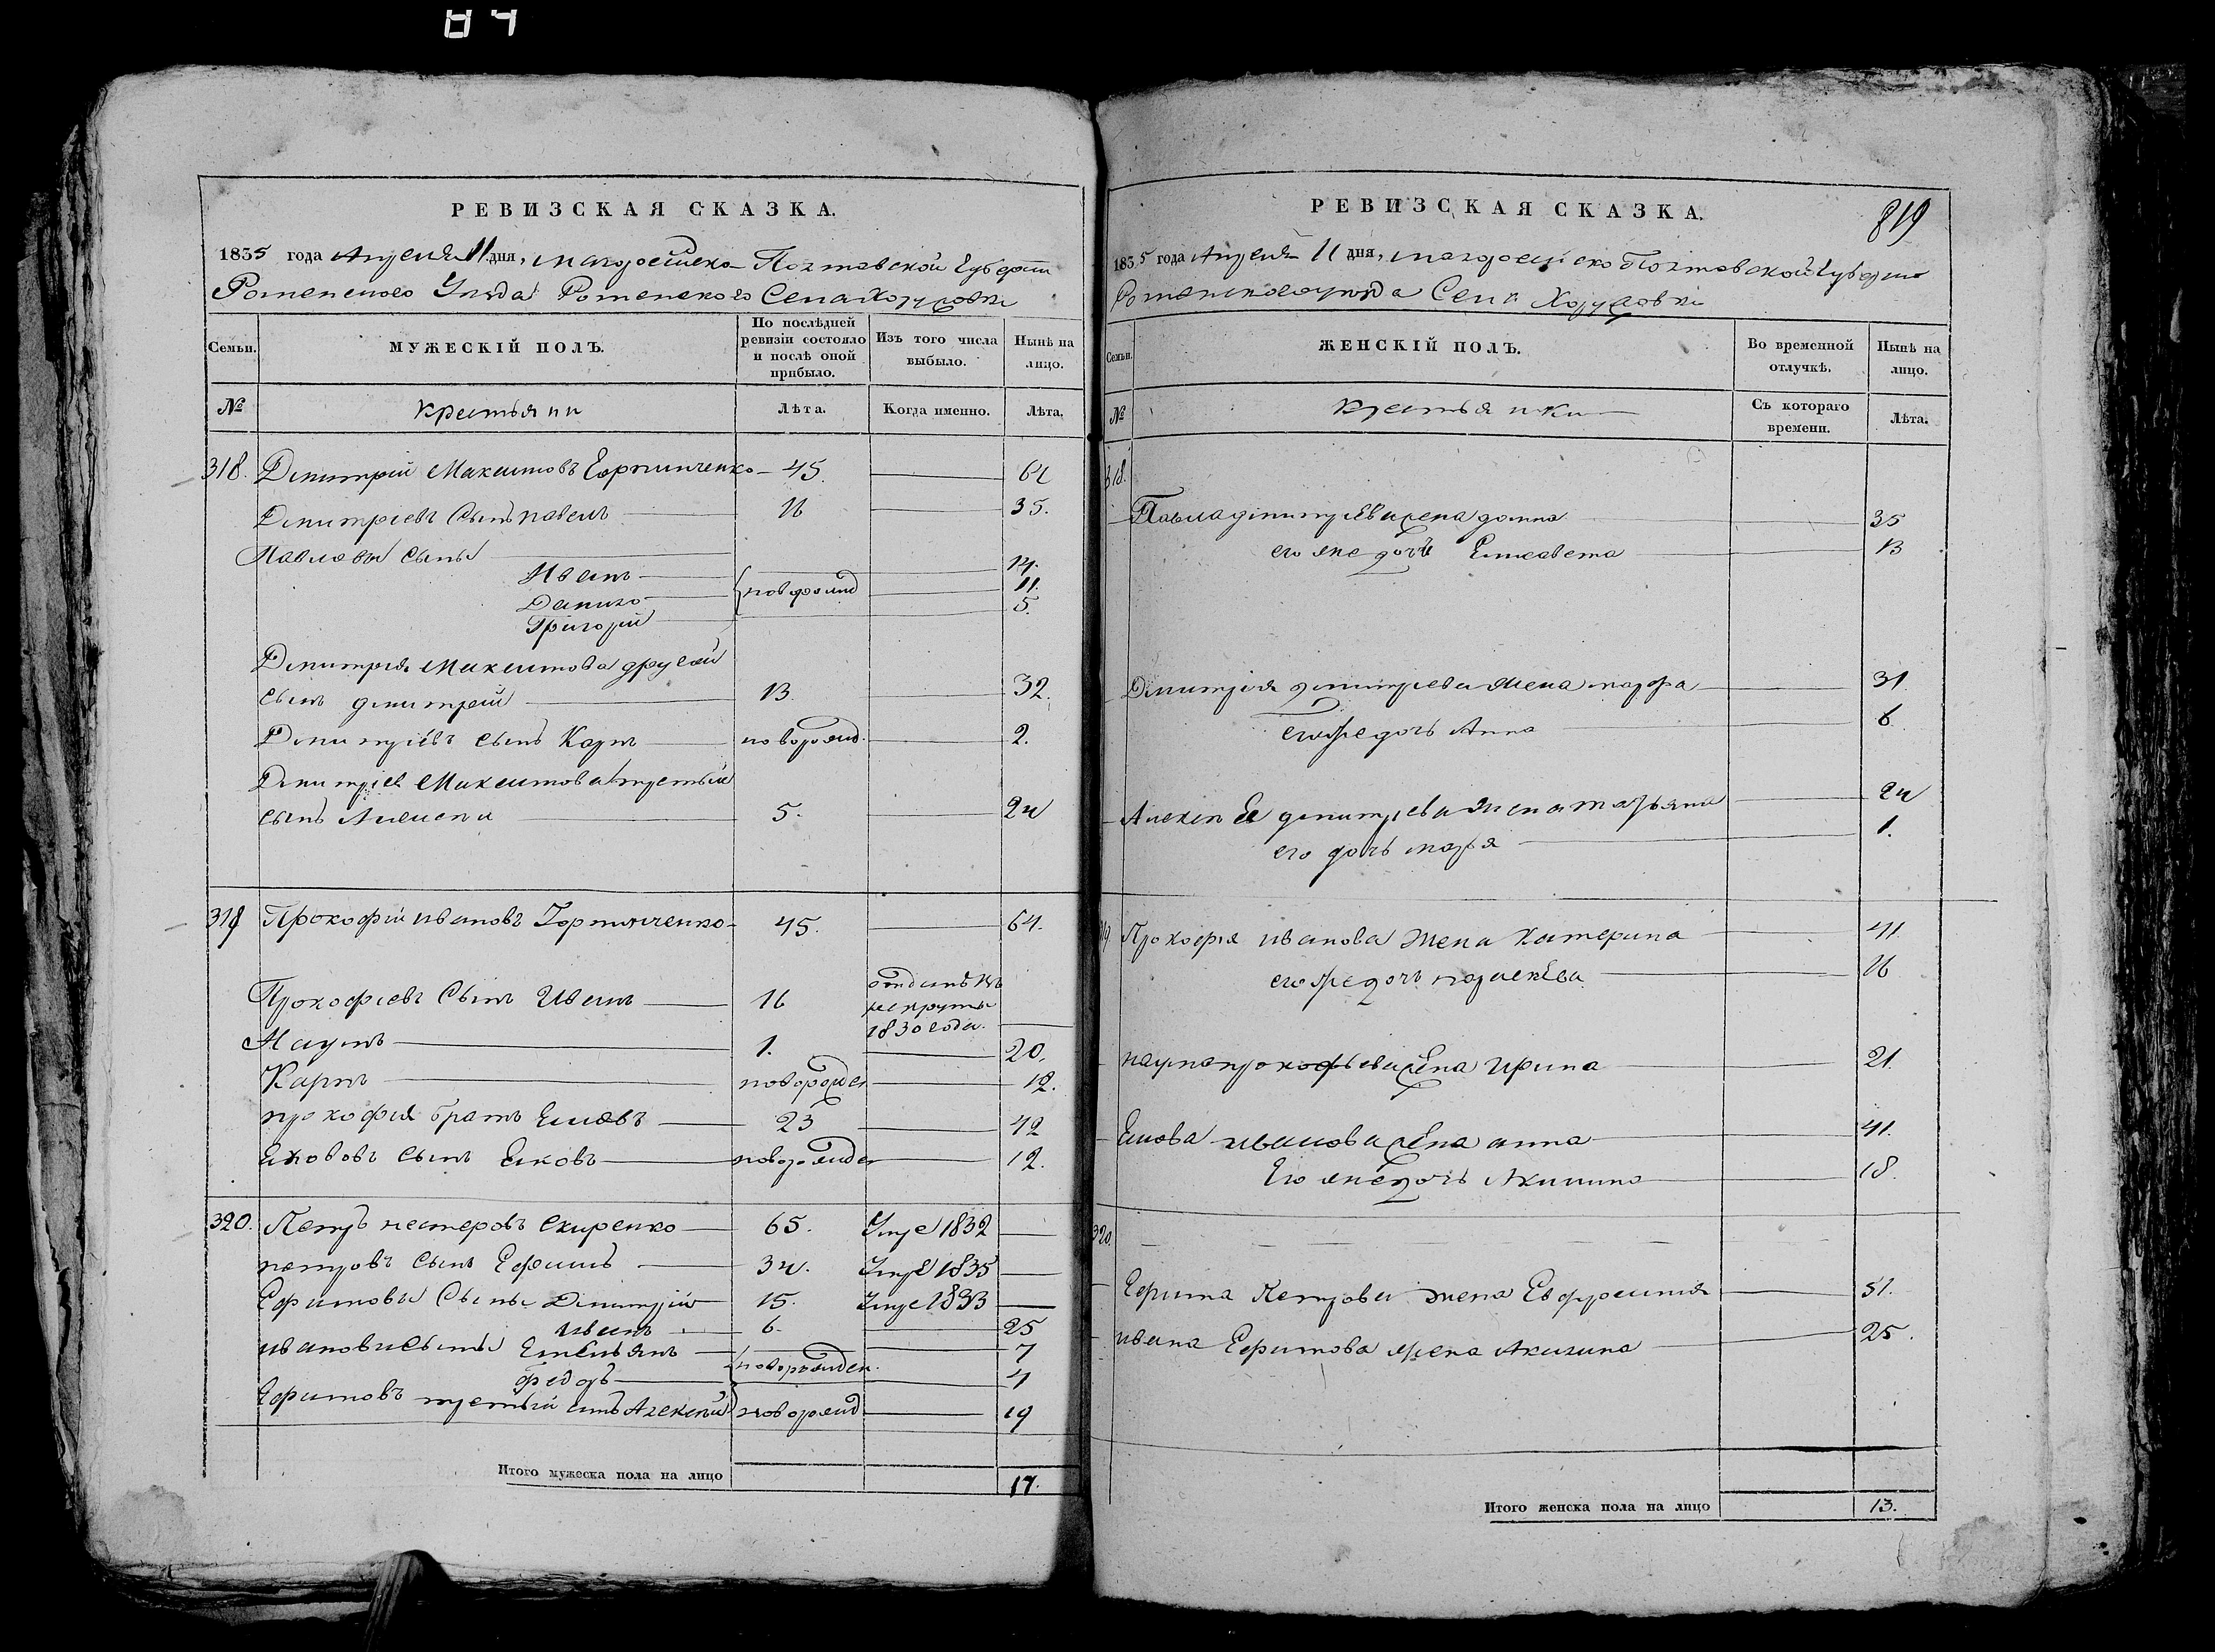 84
РЕВИЗСКАЯ СКАЗКА.
1835 года Апреля 11 дня, Малороссийско Полтавской Губернии
Роменского Уезда Роменского Села Хоружовки
Семьи.
МУЖЕСКІЙ ПОЛЪ.
По послѣдней ревизіи состояло и послѣ оной прибыло.
Изъ того числа выбыло.
Нынѣ на лицо.
№
Крестьяни
Лѣта.
Когда именно.
Лѣта.
318. Дмитрій Максимовъ 45. 64
Дмитріевъ Сынъ Павелъ 16 35.
Павловы Сыны
Иванъ 14.
Данило новорожд 11.
Григорій 5.
Дмитрія Максимова другой
сынъ дмитрей 13. 32.
Дмитріевъ сынъ Карпъ новорожд. 2.
Дмитріев Максимова третьий
сынъ Алексей 5. 24
319 Прокофій ивановъ 45. 64.
Прокофіевъ Сынъ Иванъ 16 отданъ въ рекруты 1830 года.
Наумъ 1. 20.
Карпъ новорожден 12.
прокофія братъ Ековъ 23 42
Ековъ сынъ Яковъ новорожден 12.
320. Петръ нестеровъ скиренко 65. Умре 1832
петровъ сынъ Ефимъ 34. Умре 1835
Ефимовы Сыны Дмитрій 15. Умре 1833
иванъ 6. 25
ивановы сыны Емельянъ новорожден. 7
федоръ 4
Ефимовъ третьій сынъ Алексей новорожд 19
Итого мужеска пола на лицо 17.
РЕВИЗСКАЯ СКАЗКА.
819
1835 года Апреля 11 дня, Малороссійско Полтавской Губерніи
Роменского уезда Села Хоружовки
Семьи.
ЖЕНСКІЙ ПОЛЪ.
Во временной отлучкѣ.
Нынѣ на лицо.
№
Крестьянки
Съ котораго времени.
Лѣта.
318.
Павла дмитріева жена домна 35
его же дочь Елисавета 13
Дмитрія дмитріева жена марфа 31.
его же дочь Анна 6.
Алексея дмитріева жена татьяна 24
его дочь марья 1.
319 Прокофія иванова жена Катерина 41.
его же дочь параскева 16
наума прокофьева жена Ирина 21.
Екова иванова жена анна 41.
Его же дочь Акилина 18.
320
Ефима Петрова жена Евфросинія 51.
ивана Ефимова жена Акилина 25.
Итого женска пола на лицо 13.